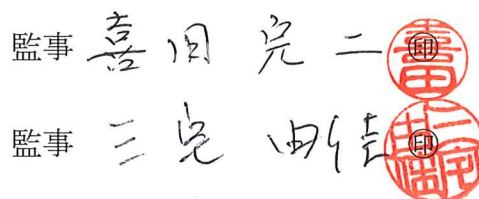 監事 喜田 完二 ㊞
監事 三宅 由佳 ㊞